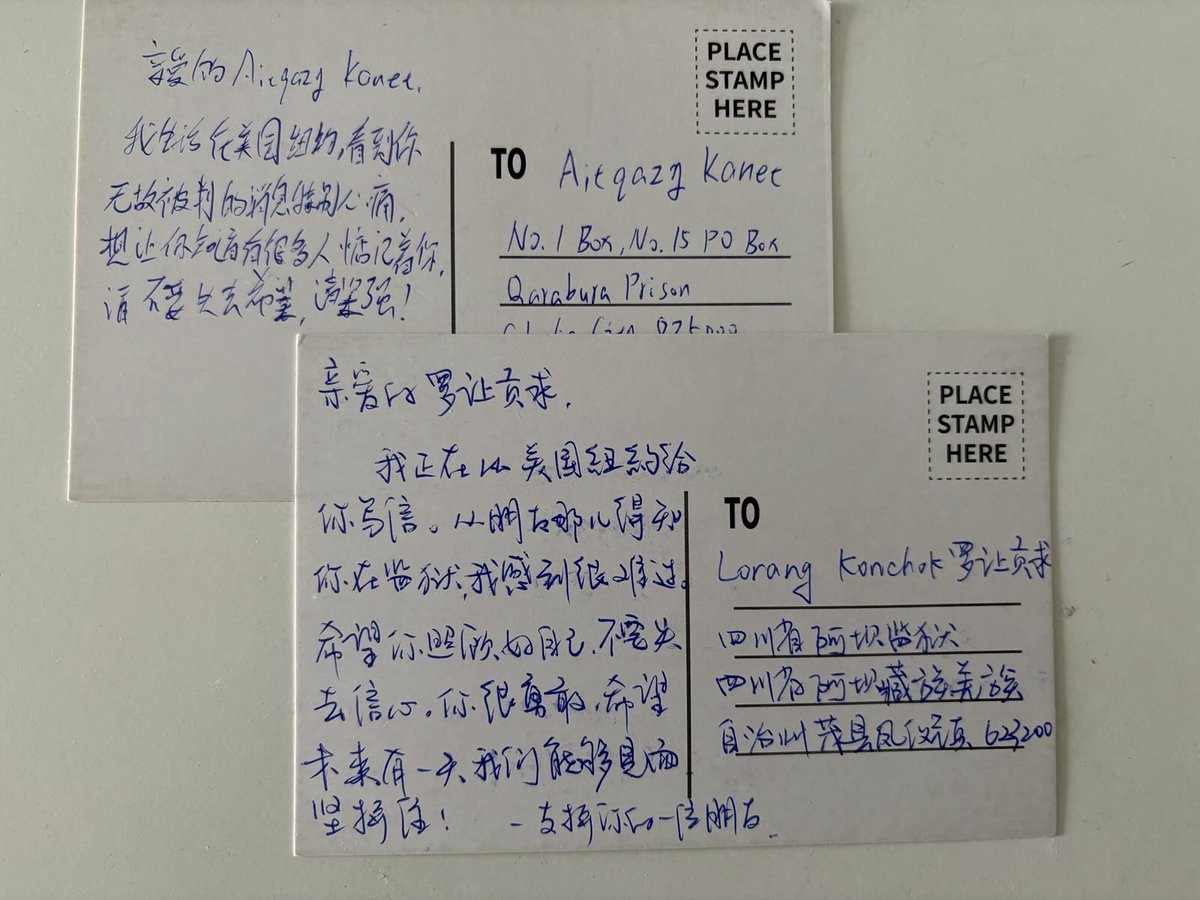 亲爱的 Aitqazy Konet,
我生活在美国纽约,看到你
无故被判的消息特别心痛,
想让你知道有很多人惦记着你,
请不要失去希望,请坚强!
PLACE
STAMP
HERE
TO Aitqazy Konet
No. 1 Box, No. 15 PO Box
Qarabura Prison
亲爱的罗让贡求,
我正在从美国纽约给
你写信。从朋友那儿得知
你在监狱,我感到很难过。
希望你照顾好自己,不要失
去信心。你很勇敢,希望
未来有一天我们能够见面
坚持住! -支持你的一位朋友
PLACE
STAMP
HERE
TO
Lorang Konchok 罗让贡求
四川省阿坝监狱
四川省阿坝藏族羌族
自治州茂县凤仪镇 623200